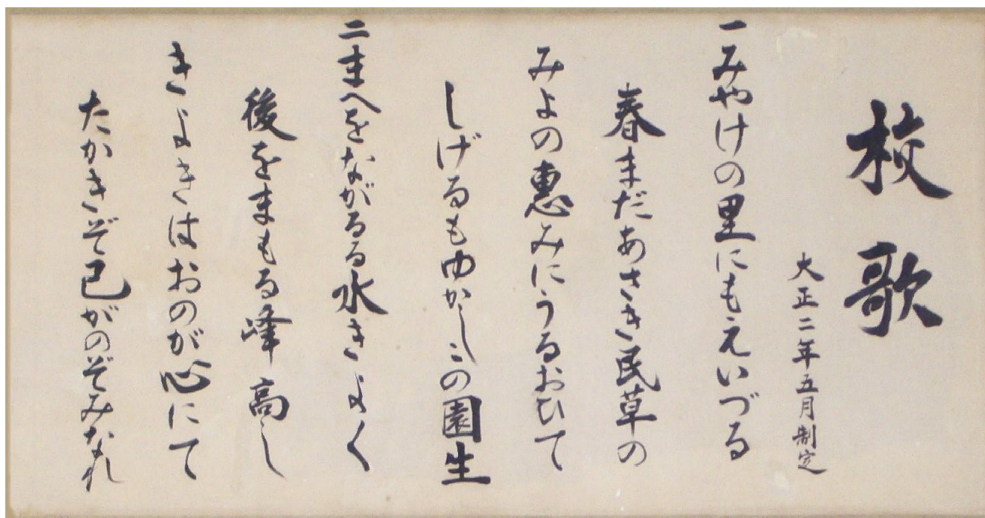 校歌
大正二年五月制定
一みやけの里にもえいづる
春まだあさき民草の
みよの恵みにうるおひて
しげるもゆかしこの園生
二まへをながるる水きよく
後をまもる峰高し
きよきはおのが心にて
たかきぞ己がのぞみなれ